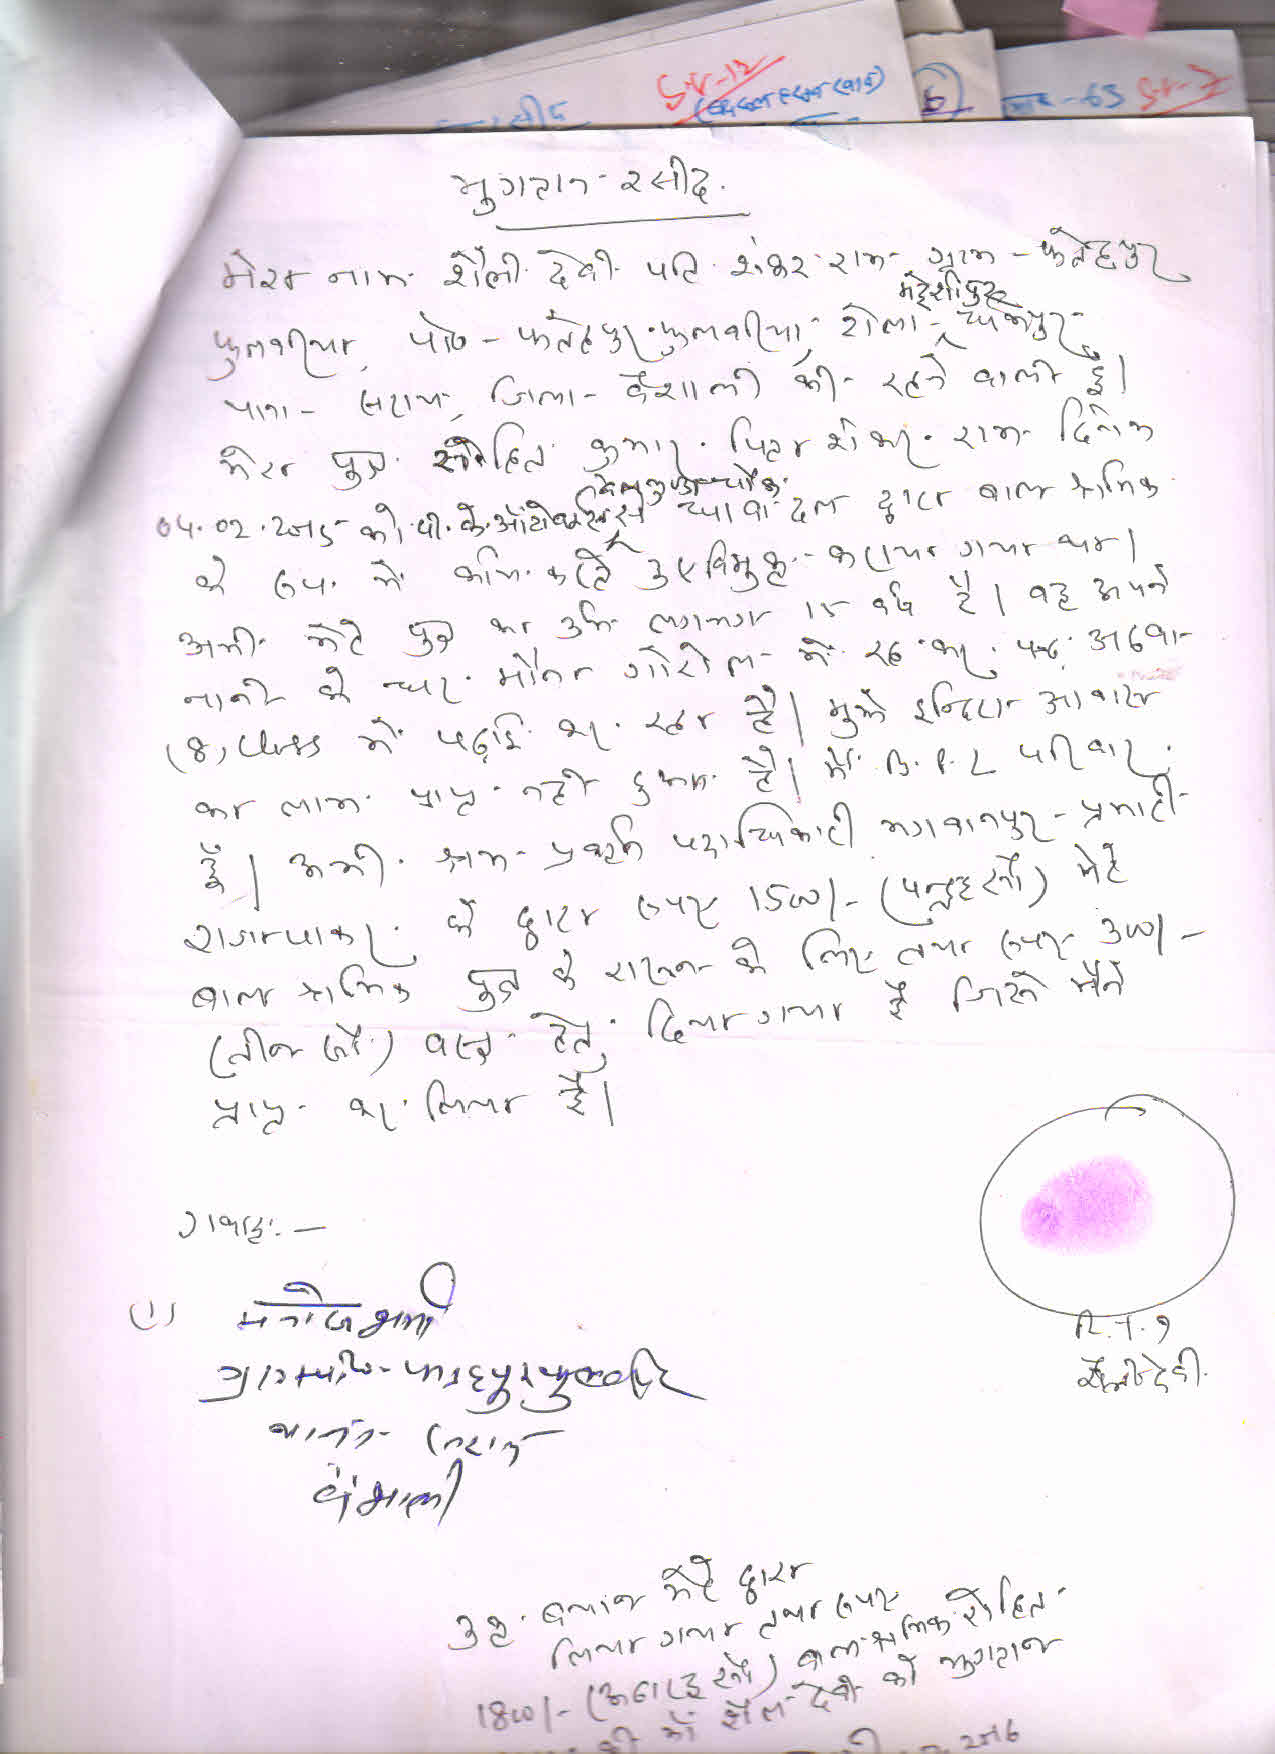 S.V-13
रसीद
6
65 S.V-7
भुगतान-रसीद.
मेरा नाम शैली देवी पति शंकर राम ग्राम - फतेहपुर
महेशीपुर
फुलवरिया, पो० - फतेहपुर फुलवरिया,
थाना - सराय, जिला - वैशाली की रहने वाली हूँ।
मेरा पुत्र रोहित कुमार पिता शंकर राम दिनांक
04.02.2015 को पी. के. ऑटो धावा दल द्वारा बाल श्रमिक
के रूप में काम करते हुए विमुक्त कराया गया था।
अभी मेरे पुत्र का उम्र लगभग 15 वर्ष है। वह अपने
नानी के घर मौना गोरौल में रह कर अठवा
(8) class में पढ़ाई कर रहा है। मुझे इन्दिरा आवास
का लाभ प्राप्त नहीं हुआ है। मैं B.P.L परिवार
हूँ। अभी श्रम प्रवर्तन पदाधिकारी भगवानपुर - प्रभारी
राजापाकर के द्वारा रुपए 1500/- (पन्द्रह सौ) मेरे
बाल श्रमिक पुत्र के राशन के लिए तथा रुपए 300/-
(तीन सौ) वस्त्र हेतु दिया गया है जिसे मैंने
प्राप्त कर लिया है।
गवाह:-
(1) मनोज
फतेहपुर फुलवरिया
थाना - सराय
वैशाली
R.T.I
शैली देवी
उक्त बयान मेरे द्वारा
लिया गया तथा रुपए
1800/- (अठारह सौ) बाल श्रमिक रोहित
की माँ शैली देवी को भुगतान
2016